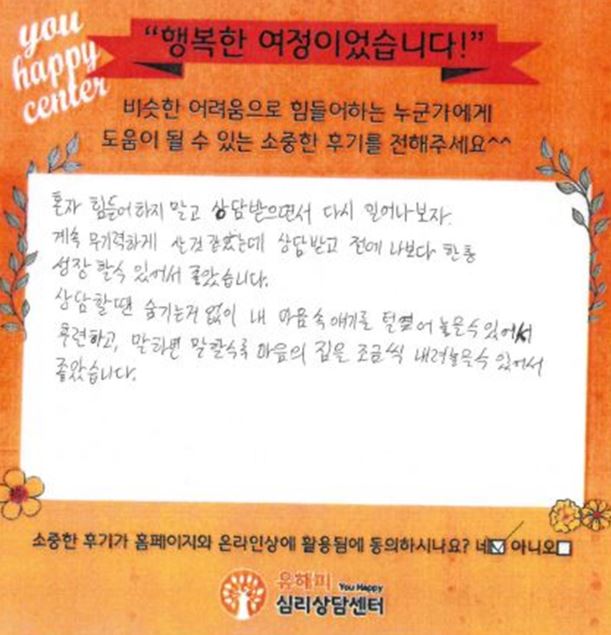 you
happy
center
“행복한 여정이었습니다!”
비슷한 어려움으로 힘들어하는 누군가에게
도움이 될 수 있는 소중한 후기를 전해주세요^^
혼자 힘들어하지 말고 상담받으면서 다시 일어나보자.
계속 무기력하게 살것 같았는데 상담받고 전에 나보다 한층
성장 할수 있어서 좋았습니다.
상담할땐 숨기는거 없이 내 마음속 얘기를 털어 놓을수 있어서
후련하고, 말하면 말할수록 마음의 짐을 조금씩 내려놓을수 있어서
좋았습니다.
소중한 후기가 홈페이지와 온라인상에 활용됨에 동의하시나요? 네☑ 아니오☐
유해피 You Happy
심리상담센터